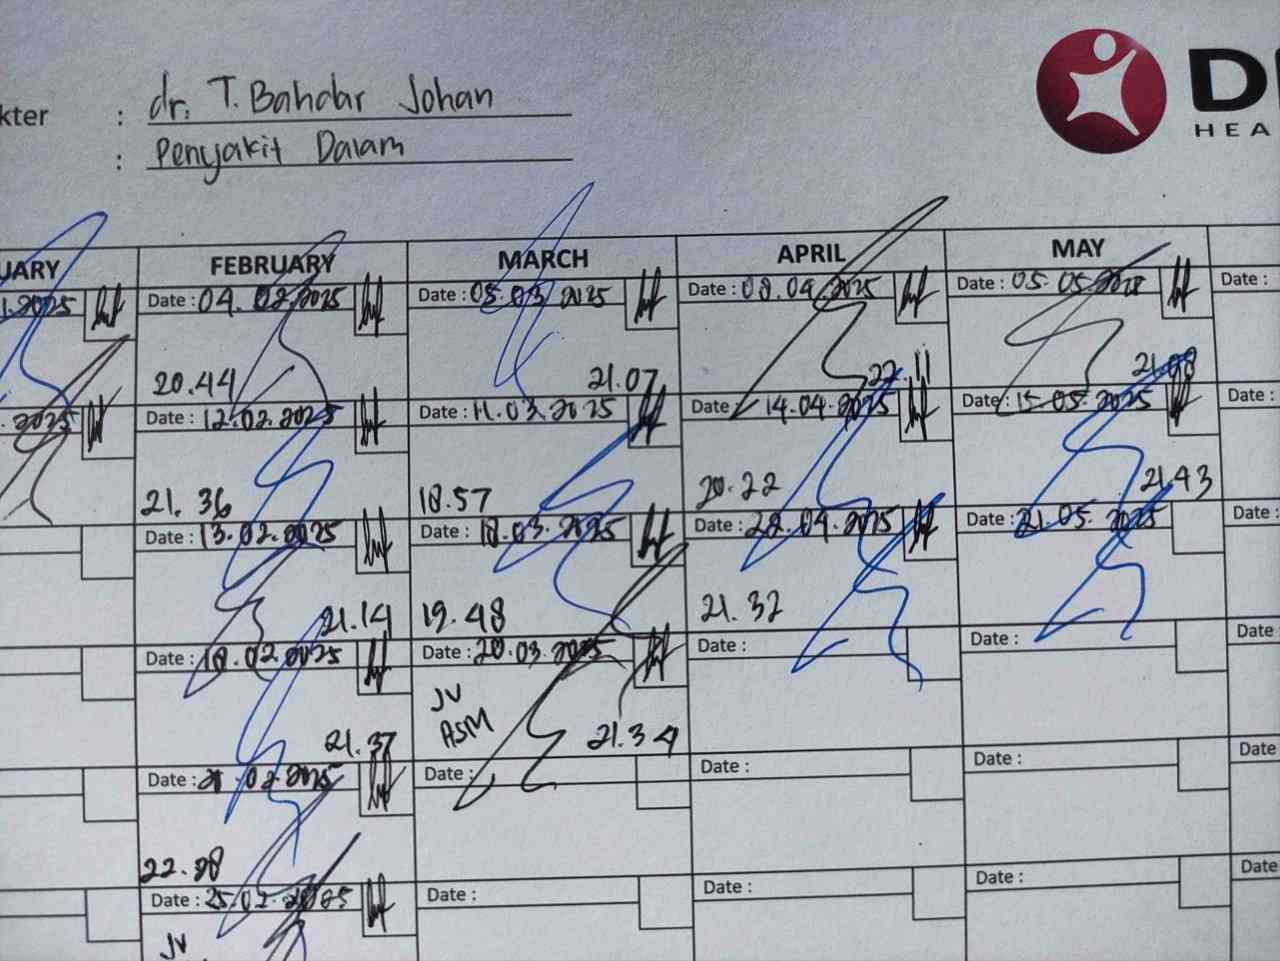 kter : dr. T. Bahdar Johan
: Penyakit Dalam
D
HEA
UARY FEBRUARY MARCH APRIL MAY
.2025 Date : 04.02.2025 Date : 05.03.2025 Date : 08.04.2025 Date : 05.05.2025 Date :
20.44 21.07 22.11
2025 Date : 12.02.2025 Date : 11.03.2025 Date : 14.04.2025 Date : 15.05.2025 Date :
21.36 18.57 20.22 21.43
Date : 13.02.2025 Date : 18.03.2025 Date : 28.04.2025 Date : 21.05.2025 Date :
21.14 19.48 21.32
Date : 18.02.2025 Date : 20.03.2025 Date : Date : Date
21.37 JV
ASM 21.34
Date : 02.2025 Date : Date : Date : Date
22.28
Date : 25.02.2025 Date : Date : Date : Date
JV